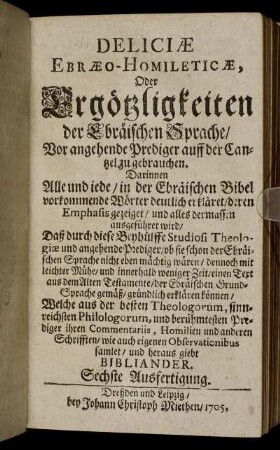 DELICIÆ
EBRÆO-HOMILETICÆ,
Oder
Ergötzligkeiten
der Ebräischen Sprache/
Vor angehende Prediger auff der Can-
tzel zu gebrauchen.
Darinnen
Alle und iede/ in der Ebräischen Bibel
vorkommende Wörter deutlich erkläret/ deren
Emphasis gezeiget/ und alles dermassen
ausgeführet wird/
Daß durch diese Beyhülffe Studiosi Theolo-
giæ und angehende Prediger/ ob sie schon der Ebräi-
schen Sprache nicht eben mächtig wären/ dennoch mit
leichter Mühe/ und innerhalb weniger Zeit/ einen Text
aus dem Alten Testamente/ der Ebräischen Grund-
Sprache gemäß/ gründlich erklären können/
Welche aus der besten Theologorum, sinn-
reichsten Philologorum, und berühmtesten Pre-
diger ihren Commentariis, Homilien und anderen
Schrifften/ wie auch eigenen Observationibus
samlet/ und heraus giebt
BIBLIANDER.
Sechste Ausfertigung.
Dreßden und Leipzig/
bey Johann Christoph Miethen/ 1705.